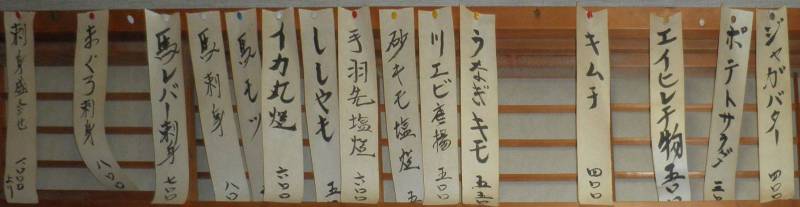 ジャガバター 四〇〇
ポテトサラダ 三〇
エイヒレ干物 五〇
キムチ 四〇〇
うなぎキモ 五五
川エビ唐揚 五〇〇
砂キモ塩焼 五
手羽先塩焼 六〇〇
ししゃも 五
イカ丸焼 六〇〇
馬モツ
馬刺身 八〇
馬レバー刺身 七〇〇
まぐろ刺身 八〇〇
刺身盛合せ 一〇〇〇より